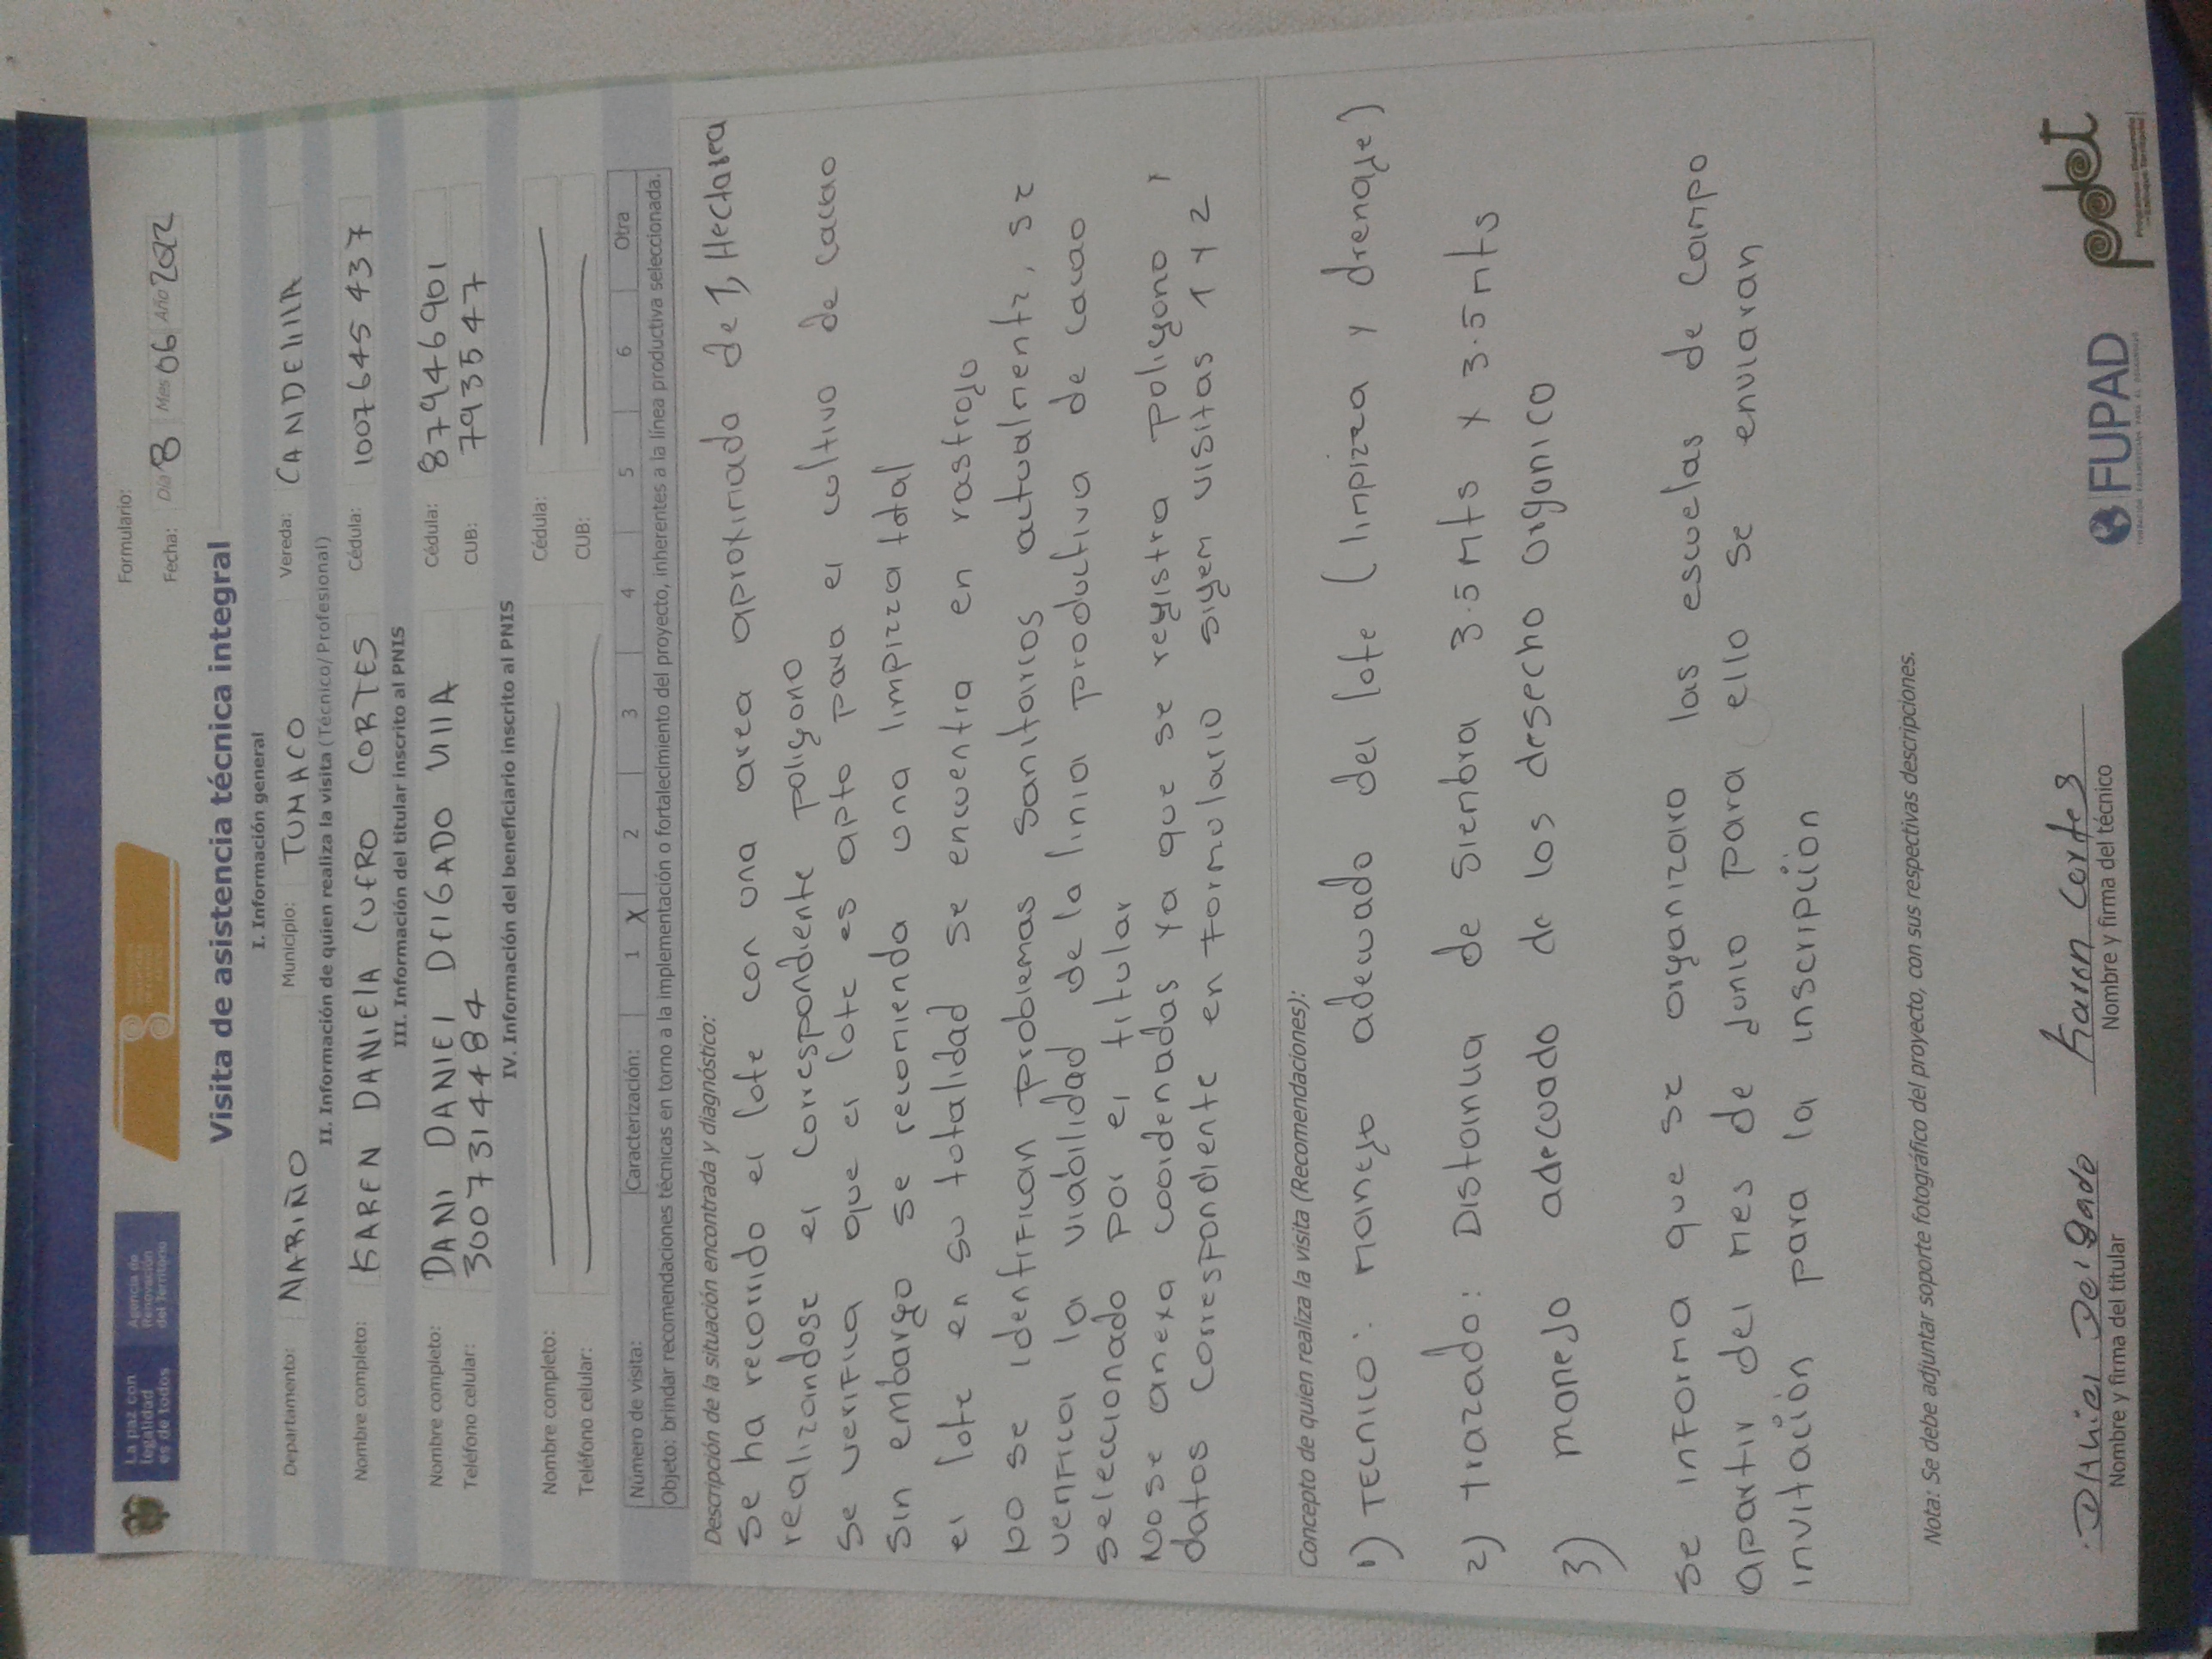 La paz con
legalidad
es de todos
Agencia de
Renovación
del Territorio
Formulario:
Fecha: Día 8 Mes 06 Año 2022
Visita de asistencia técnica integral
I. Información general
Departamento: NARIÑO Municipio: TUMACO Vereda: CANDElIllA
II. Información de quien realiza la visita (Técnico/Profesional)
Nombre completo: KAREN DANIElA CUERO CORTES Cédula: 1007645437
III. Información del titular inscrito al PNIS
Nombre completo: DANI DANIEl DElGADO VIllA Cédula: 879446901
Teléfono celular: 3007314484 CUB: 793547
IV. Información del beneficiario inscrito al PNIS
Nombre completo: Cédula:
Teléfono celular: CUB:
Número de visita: Caracterización: 1 X 2 3 4 5 6 Otra
Objeto: brindar recomendaciones técnicas en torno a la implementación o fortalecimiento del proyecto, inherentes a la línea productiva seleccionada.
Descripción de la situación encontrada y diagnóstico:
se ha recorrido el lote con una area aproximada de 1, Hectarea
realizandose el correspondiente poligono
se verifica que el lote es apto para el cultivo de cacao
sin embargo se recomienda una limpieza total
el lote en su totalidad se encuentra en rastrojo
No se identifican problemas sanitarios actualmente, se
verifica la viabilidad de la linia productiva de cacao
seleccionado por el titular
No se anexa coordenadas ya que se registra poligono,
datos correspondiente en formulario sigem visitas 1 y 2
Concepto de quien realiza la visita (Recomendaciones):
1) Tecnico: manejo adecuado del lote (limpieza y drenaje)
2) trazado: Distancia de siembra 3.5 mts x 3.5 mts
3) manejo adecuado de los desecho organico
se informa que se organizara las escuelas de campo
apartir del mes de Junio para ello se enviaran
invitación para la inscripción
Nota: Se debe adjuntar soporte fotográfico del proyecto, con sus respectivas descripciones.
Daniel Delgado
Nombre y firma del titular
Karen Cortes
Nombre y firma del técnico
FUPAD
pdet